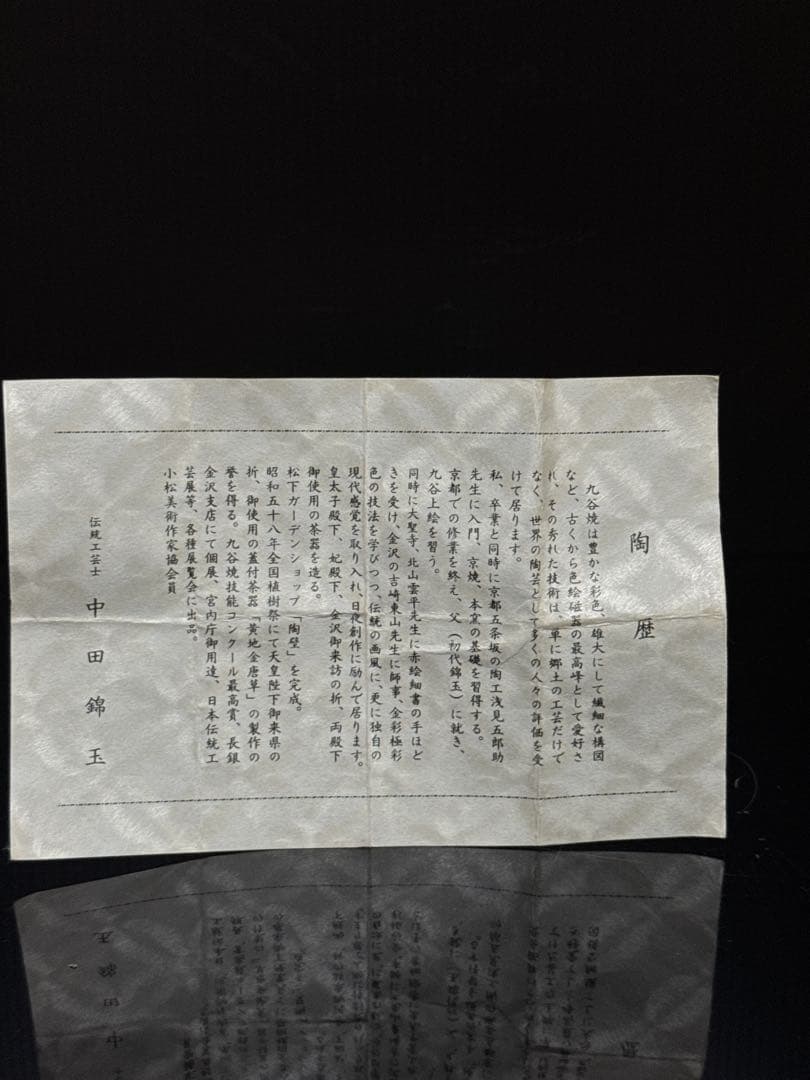 陶歴
九谷焼は豊かな彩色、雄大にして繊細な構図
など、古くから色絵磁器の最高峰として愛好さ
れ、その秀れた技術は、単に郷土の工芸だけで
なく、世界の陶芸として多くの人々の評価を受
けて居ります。
私、卒業と同時に京都五条坂の陶工浅見五郎助
先生に入門、京焼、本窯の基礎を習得する。
京都での修業を終え、父（初代錦玉）に就き、
九谷上絵を習う。
同時に大聖寺、北山雲平先生に赤絵細書の手ほど
きを受け、金沢の吉崎東山先生に師事、金彩極彩
色の技法を学びつつ、伝統の画風に、更に独自の
現代感覚を取り入れ、日夜創作に励んで居ります。
皇太子殿下、妃殿下、金沢御来訪の折、両殿下
御使用の茶器を造る。
松下ガーデンショップ「陶壁」を完成。
昭和五十八年全国植樹祭にて天皇陛下御来県の
折、御使用の蓋付茶器「黄地金唐草」の製作の
誉を得る。九谷焼技能コンクール最高賞、長銀
金沢支店にて個展、宮内庁御用達、日本伝統工
芸展等、各種展覧会に出品。
小松美術作家協会員
伝統工芸士 中田錦玉